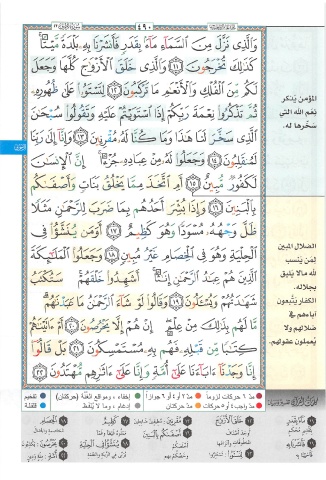 ٤٩٠
وَٱلَّذِى نَزَّلَ مِنَ ٱلسَّمَآءِ مَآءًۢ بِقَدَرٍ فَأَنشَرْنَا بِهِۦ بَلْدَةً مَّيْتًا
كَذَٰلِكَ تُخْرَجُونَ ١١ وَٱلَّذِى خَلَقَ ٱلْأَزْوَٰجَ كُلَّهَا وَجَعَلَ
لَكُم مِّنَ ٱلْفُلْكِ وَٱلْأَنْعَٰمِ مَا تَرْكَبُونَ ١٢ لِتَسْتَوُۥا۟ عَلَىٰ ظُهُورِهِۦ
ثُمَّ تَذْكُرُوا۟ نِعْمَةَ رَبِّكُمْ إِذَا ٱسْتَوَيْتُمْ عَلَيْهِ وَتَقُولُوا۟ سُبْحَٰنَ
ٱلَّذِى سَخَّرَ لَنَا هَٰذَا وَمَا كُنَّا لَهُۥ مُقْرِنِينَ ١٣ وَإِنَّآ إِلَىٰ رَبِّنَا
لَمُنقَلِبُونَ ١٤ وَجَعَلُوا۟ لَهُۥ مِنْ عِبَادِهِۦ جُزْءًا إِنَّ ٱلْإِنسَٰنَ
لَكَفُورٌ مُّبِينٌ ١٥ أَمِ ٱتَّخَذَ مِمَّا يَخْلُقُ بَنَاتٍ وَأَصْفَىٰكُم
بِٱلْبَنِينَ ١٦ وَإِذَا بُشِّرَ أَحَدُهُم بِمَا ضَرَبَ لِلرَّحْمَٰنِ مَثَلًا
ظَلَّ وَجْهُهُۥ مُسْوَدًّا وَهُوَ كَظِيمٌ ١٧ أَوَمَن يُنَشَّؤُا۟ فِى
ٱلْحِلْيَةِ وَهُوَ فِى ٱلْخِصَامِ غَيْرُ مُبِينٍ ١٨ وَجَعَلُوا۟ ٱلْمَلَٰٓئِكَةَ
ٱلَّذِينَ هُمْ عِبَٰدُ ٱلرَّحْمَٰنِ إِنَٰثًا أَشَهِدُوا۟ خَلْقَهُمْ سَتُكْتَبُ
شَهَٰدَتُهُمْ وَيُسْـَٔلُونَ ١٩ وَقَالُوا۟ لَوْ شَآءَ ٱلرَّحْمَٰنُ مَا عَبَدْنَٰهُم
مَّا لَهُم بِذَٰلِكَ مِنْ عِلْمٍ إِنْ هُمْ إِلَّا يَخْرُصُونَ ٢٠ أَمْ ءَاتَيْنَٰهُمْ
كِتَٰبًا مِّن قَبْلِهِۦ فَهُم بِهِۦ مُسْتَمْسِكُونَ ٢١ بَلْ قَالُوٓا۟
إِنَّا وَجَدْنَآ ءَابَآءَنَا عَلَىٰٓ أُمَّةٍ وَإِنَّا عَلَىٰٓ ءَاثَٰرِهِم مُّهْتَدُونَ ٢٢
المؤمن يذكر
نعم الله التي
سخرها له.
الضلال المبين
لمن ينسب
لله ما لا يليق
بجلاله.
الكفار يتبعون
آباءهم في
ضلالهم ولا
يعملون عقولهم.
مد ٦ حركات لزوماً
مد ٢ أو ٤ أو ٦ جوازاً
إخفاء، ومواقع الغنة (حركتان)
تفخيم
مد واجب ٤ أو ٥ حركات
مد حركتان
إدغام، وما لا يلفظ
قلقلة